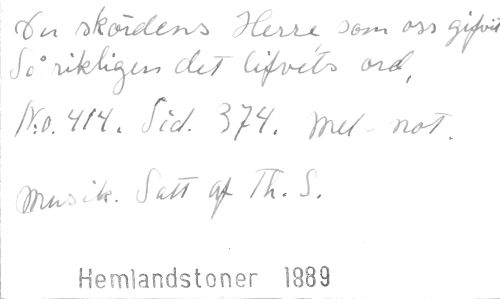 Du skördens Herre, som oss gifvit
Så rikligen det lifvets ord,
No. 414. Sid. 374. Mel-not.
Musik. Satt af Th. S.
Hemlandstoner 1889